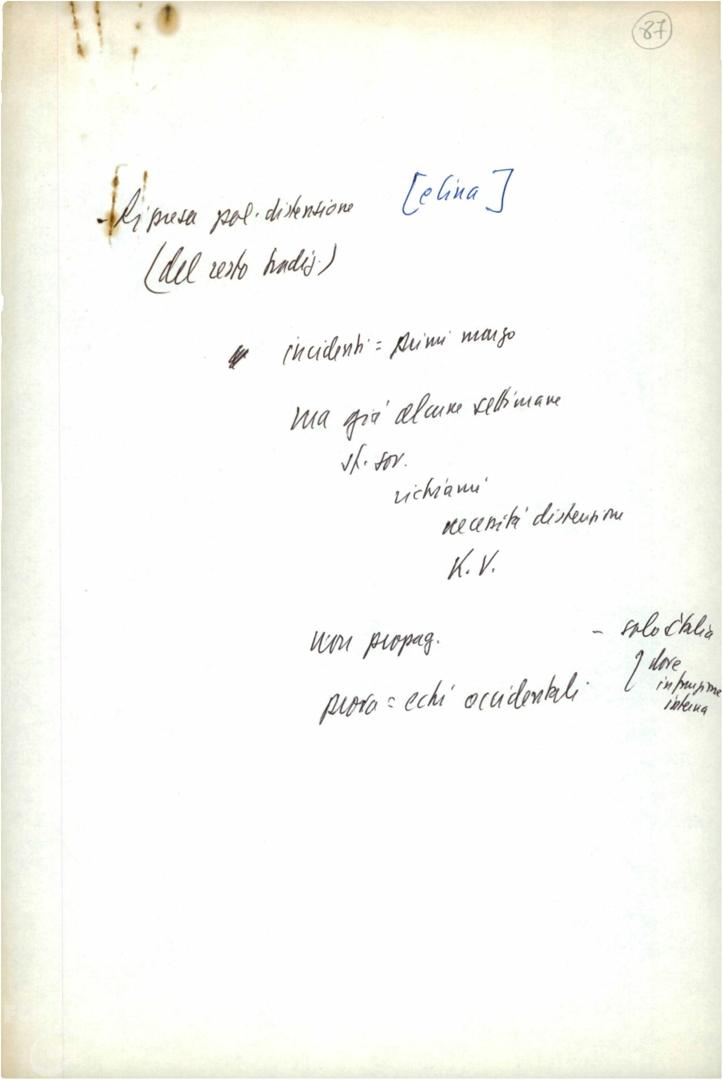 87
- Ripresa pol. distensione [elina]
(del resto tradiz.)
incidenti = primi marzo
ma già alcune settimane
st. sov.
richiami
necessità distensione
K. V.
non propag.
- solo Italia
dove
interna
prova = echi occidentali